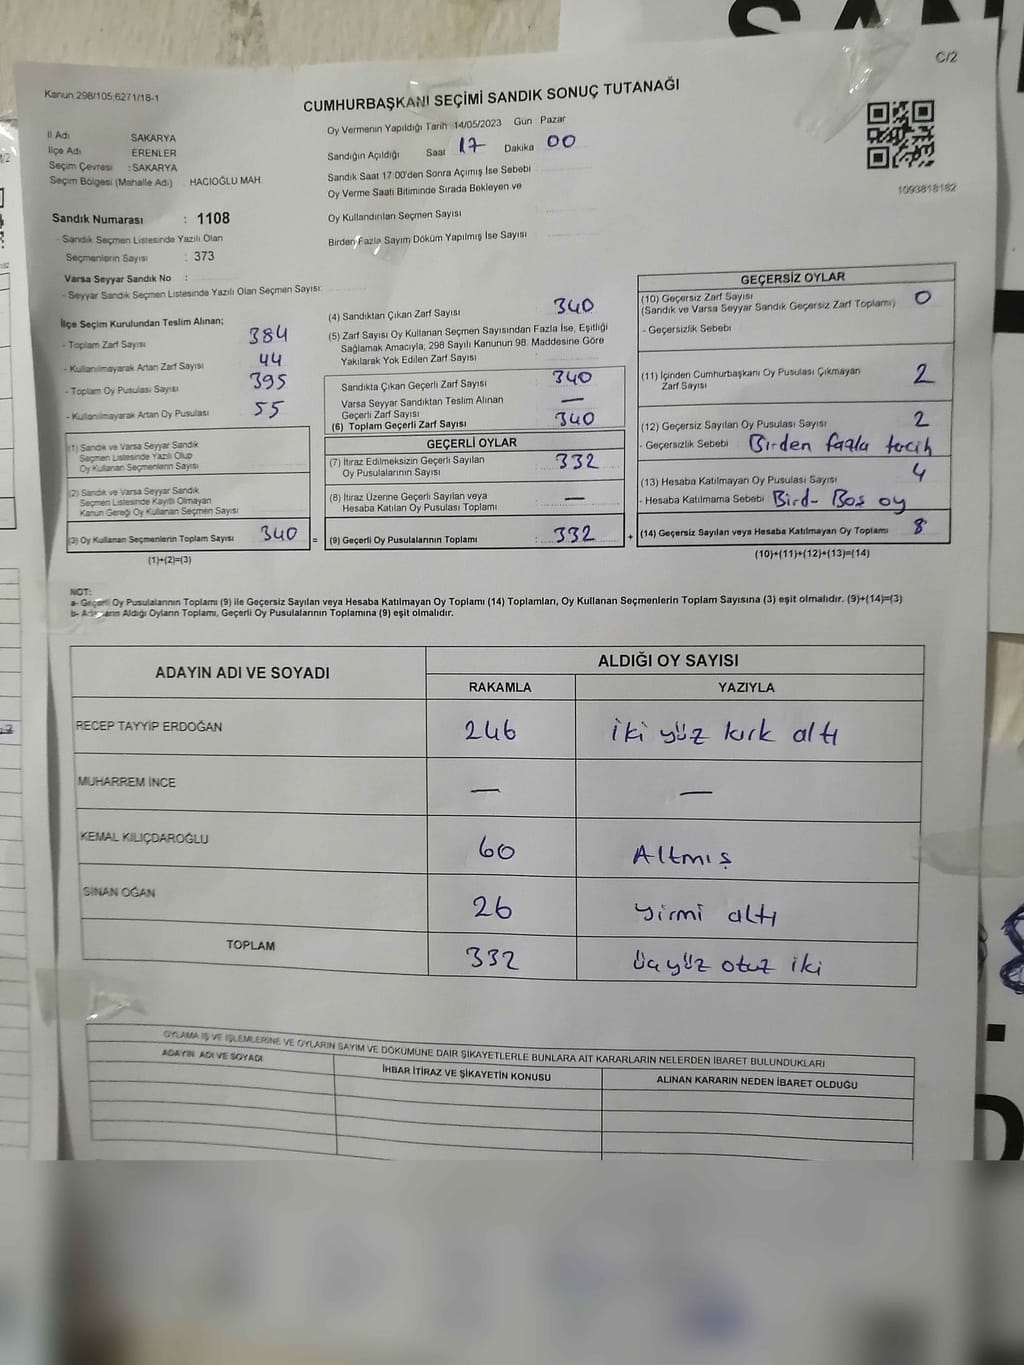 C/2
Kanun:298/105;6271/18-1
CUMHURBAŞKANI SEÇİMİ SANDIK SONUÇ TUTANAĞI
İl Adı SAKARYA
İlçe Adı ERENLER
Seçim Çevresi : SAKARYA
Seçim Bölgesi (Mahalle Adı) : HACIOĞLU MAH.
Oy Vermenin Yapıldığı Tarih 14/05/2023 Gün Pazar
Sandığın Açıldığı Saat 17 Dakika 00
Sandık Saat 17:00'den Sonra Açımış İse Sebebi
Oy Verme Saati Bitiminde Sırada Bekleyen ve
Oy Kullandırılan Seçmen Sayısı
Birden Fazla Sayım Döküm Yapılmış İse Sayısı
1093818182
Sandık Numarası : 1108
- Sandık Seçmen Listesinde Yazılı Olan
Seçmenlerin Sayısı : 373
Varsa Seyyar Sandık No :
- Seyyar Sandık Seçmen Listesinde Yazılı Olan Seçmen Sayısı:
İlçe Seçim Kurulundan Teslim Alınan;
- Toplam Zarf Sayısı 384
- Kullanılmayarak Artan Zarf Sayısı 44
- Toplam Oy Pusulası Sayısı 395
- Kullanılmayarak Artan Oy Pusulası 55
(1) Sandık ve Varsa Seyyar Sandık
Seçmen Listesinde Yazılı Olup
Oy Kullanan Seçmenlerin Sayısı
(2) Sandık ve Varsa Seyyar Sandık
Seçmen Listesinde Kayıtlı Olmayan
Kanun Gereği Oy Kullanan Seçmen Sayısı
(3) Oy Kullanan Seçmenlerin Toplam Sayısı 340 =
(1)+(2)=(3)
(4) Sandıktan Çıkan Zarf Sayısı 340
(5) Zarf Sayısı Oy Kullanan Seçmen Sayısından Fazla İse, Eşitliği
Sağlamak Amacıyla, 298 Sayılı Kanunun 98. Maddesine Göre
Yakılarak Yok Edilen Zarf Sayısı :
Sandıkta Çıkan Geçerli Zarf Sayısı : 340
Varsa Seyyar Sandıktan Teslim Alınan
Geçerli Zarf Sayısı : —
(6) Toplam Geçerli Zarf Sayısı : 340
GEÇERLİ OYLAR
(7) İtiraz Edilmeksizin Geçerli Sayılan
Oy Pusulalarının Sayısı : 332
(8) İtiraz Üzerine Geçerli Sayılan veya
Hesaba Katılan Oy Pusulası Toplamı : —
(9) Geçerli Oy Pusulalarının Toplamı : 332 +
GEÇERSİZ OYLAR
(10) Geçersiz Zarf Sayısı 0
(Sandık ve Varsa Seyyar Sandık Geçersiz Zarf Toplamı)
- Geçersizlik Sebebi
(11) İçinden Cumhurbaşkanı Oy Pusulası Çıkmayan
Zarf Sayısı 2
(12) Geçersiz Sayılan Oy Pusulası Sayısı 2
- Geçersizlik Sebebi Birden fazla tercih
(13) Hesaba Katılmayan Oy Pusulası Sayısı 4
- Hesaba Katılmama Sebebi Bird- Boş oy
(14) Geçersiz Sayılan veya Hesaba Katılmayan Oy Toplamı 8
(10)+(11)+(12)+(13)=(14)
NOT:
a- Geçerli Oy Pusulalarının Toplamı (9) ile Geçersiz Sayılan veya Hesaba Katılmayan Oy Toplamı (14) Toplamları, Oy Kullanan Seçmenlerin Toplam Sayısına (3) eşit olmalıdır. (9)+(14)=(3)
b- Adayların Aldığı Oyların Toplamı, Geçerli Oy Pusulalarının Toplamına (9) eşit olmalıdır.
ADAYIN ADI VE SOYADI
ALDIĞI OY SAYISI
RAKAMLA YAZIYLA
RECEP TAYYİP ERDOĞAN 246 iki yüz kırk altı
MUHARREM İNCE — —
KEMAL KILIÇDAROĞLU 60 Altmış
SİNAN OĞAN 26 yirmi altı
TOPLAM 332 üçyüz otuz iki
OYLAMA İŞ VE İŞLEMLERİNE VE OYLARIN SAYIM VE DÖKÜMÜNE DAİR ŞİKAYETLERLE BUNLARA AİT KARARLARIN NELERDEN İBARET BULUNDUKLARI
ADAYIN ADI VE SOYADI İHBAR İTİRAZ VE ŞİKAYETİN KONUSU ALINAN KARARIN NEDEN İBARET OLDUĞU